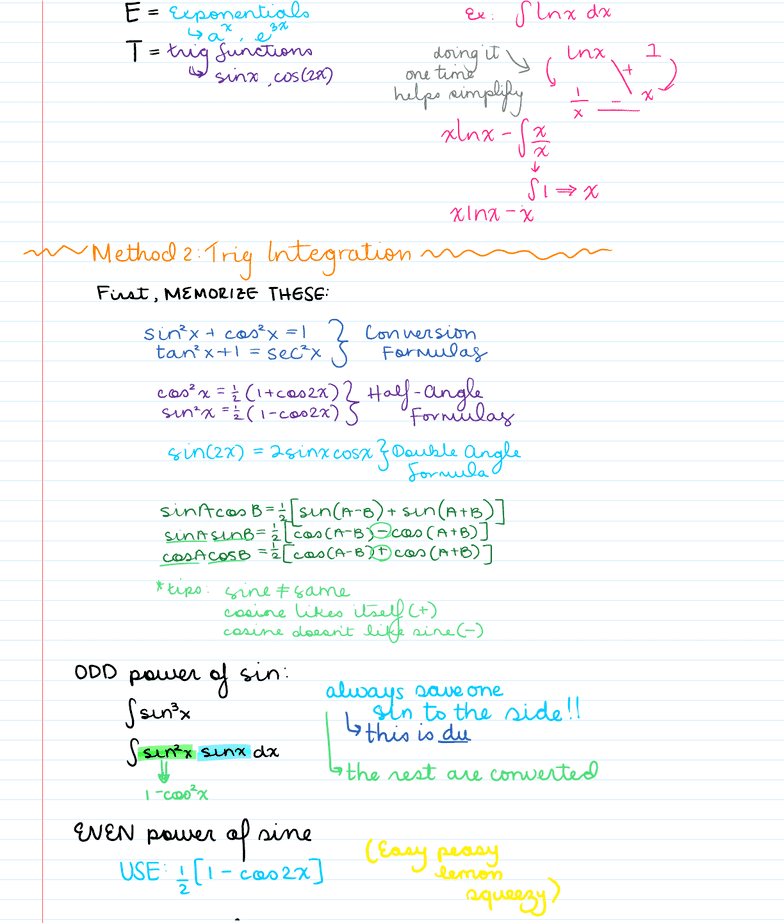 E = Exponentials
↳ aˣ, e³ˣ
T = trig functions
↳ sinx, cos(2x)
Ex: ∫ lnx dx
doing it
one time
helps simplify
lnx 1
+
1/x − x
xlnx − ∫ x/x
↓
∫1 ⇒ x
xlnx − x
Method 2: Trig Integration
First, MEMORIZE THESE:
sin²x + cos²x = 1 } Conversion
tan²x + 1 = sec²x } Formulas
cos²x = ½(1+cos2x) } Half-Angle
sin²x = ½(1−cos2x) } Formulas
sin(2x) = 2sinxcosx } Double Angle
Formula
sinAcosB = ½[sin(A−B) + sin(A+B)]
sinAsinB = ½[cos(A−B) − cos(A+B)]
cosAcosB = ½[cos(A−B) + cos(A+B)]
*tips: sine ≠ same
cosine likes itself (+)
cosine doesn't like sine (−)
ODD power of sin:
∫ sin³x
∫ sin²x sinx dx
⇓
1−cos²x
always save one
sin to the side!!
↳ this is du
↳ the rest are converted
EVEN power of sine
USE: ½[1 − cos2x]
(Easy peasy
lemon
squeezy)